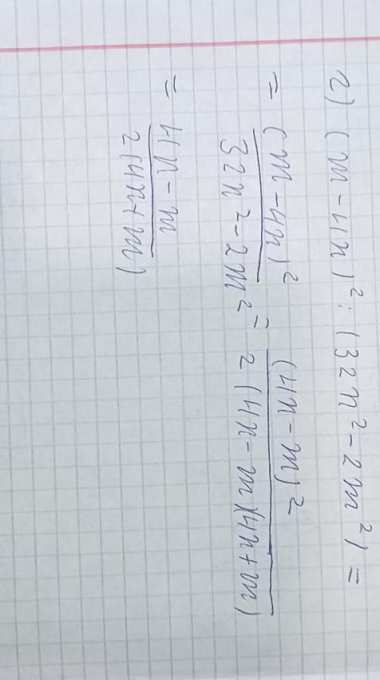 2) (m-4n)²:(32n²-2m²)=
= (m-4n)²/32n²-2m² = (4n-m)²/2(4n-m)(4n+m)
= 4n-m/2(4n+m)